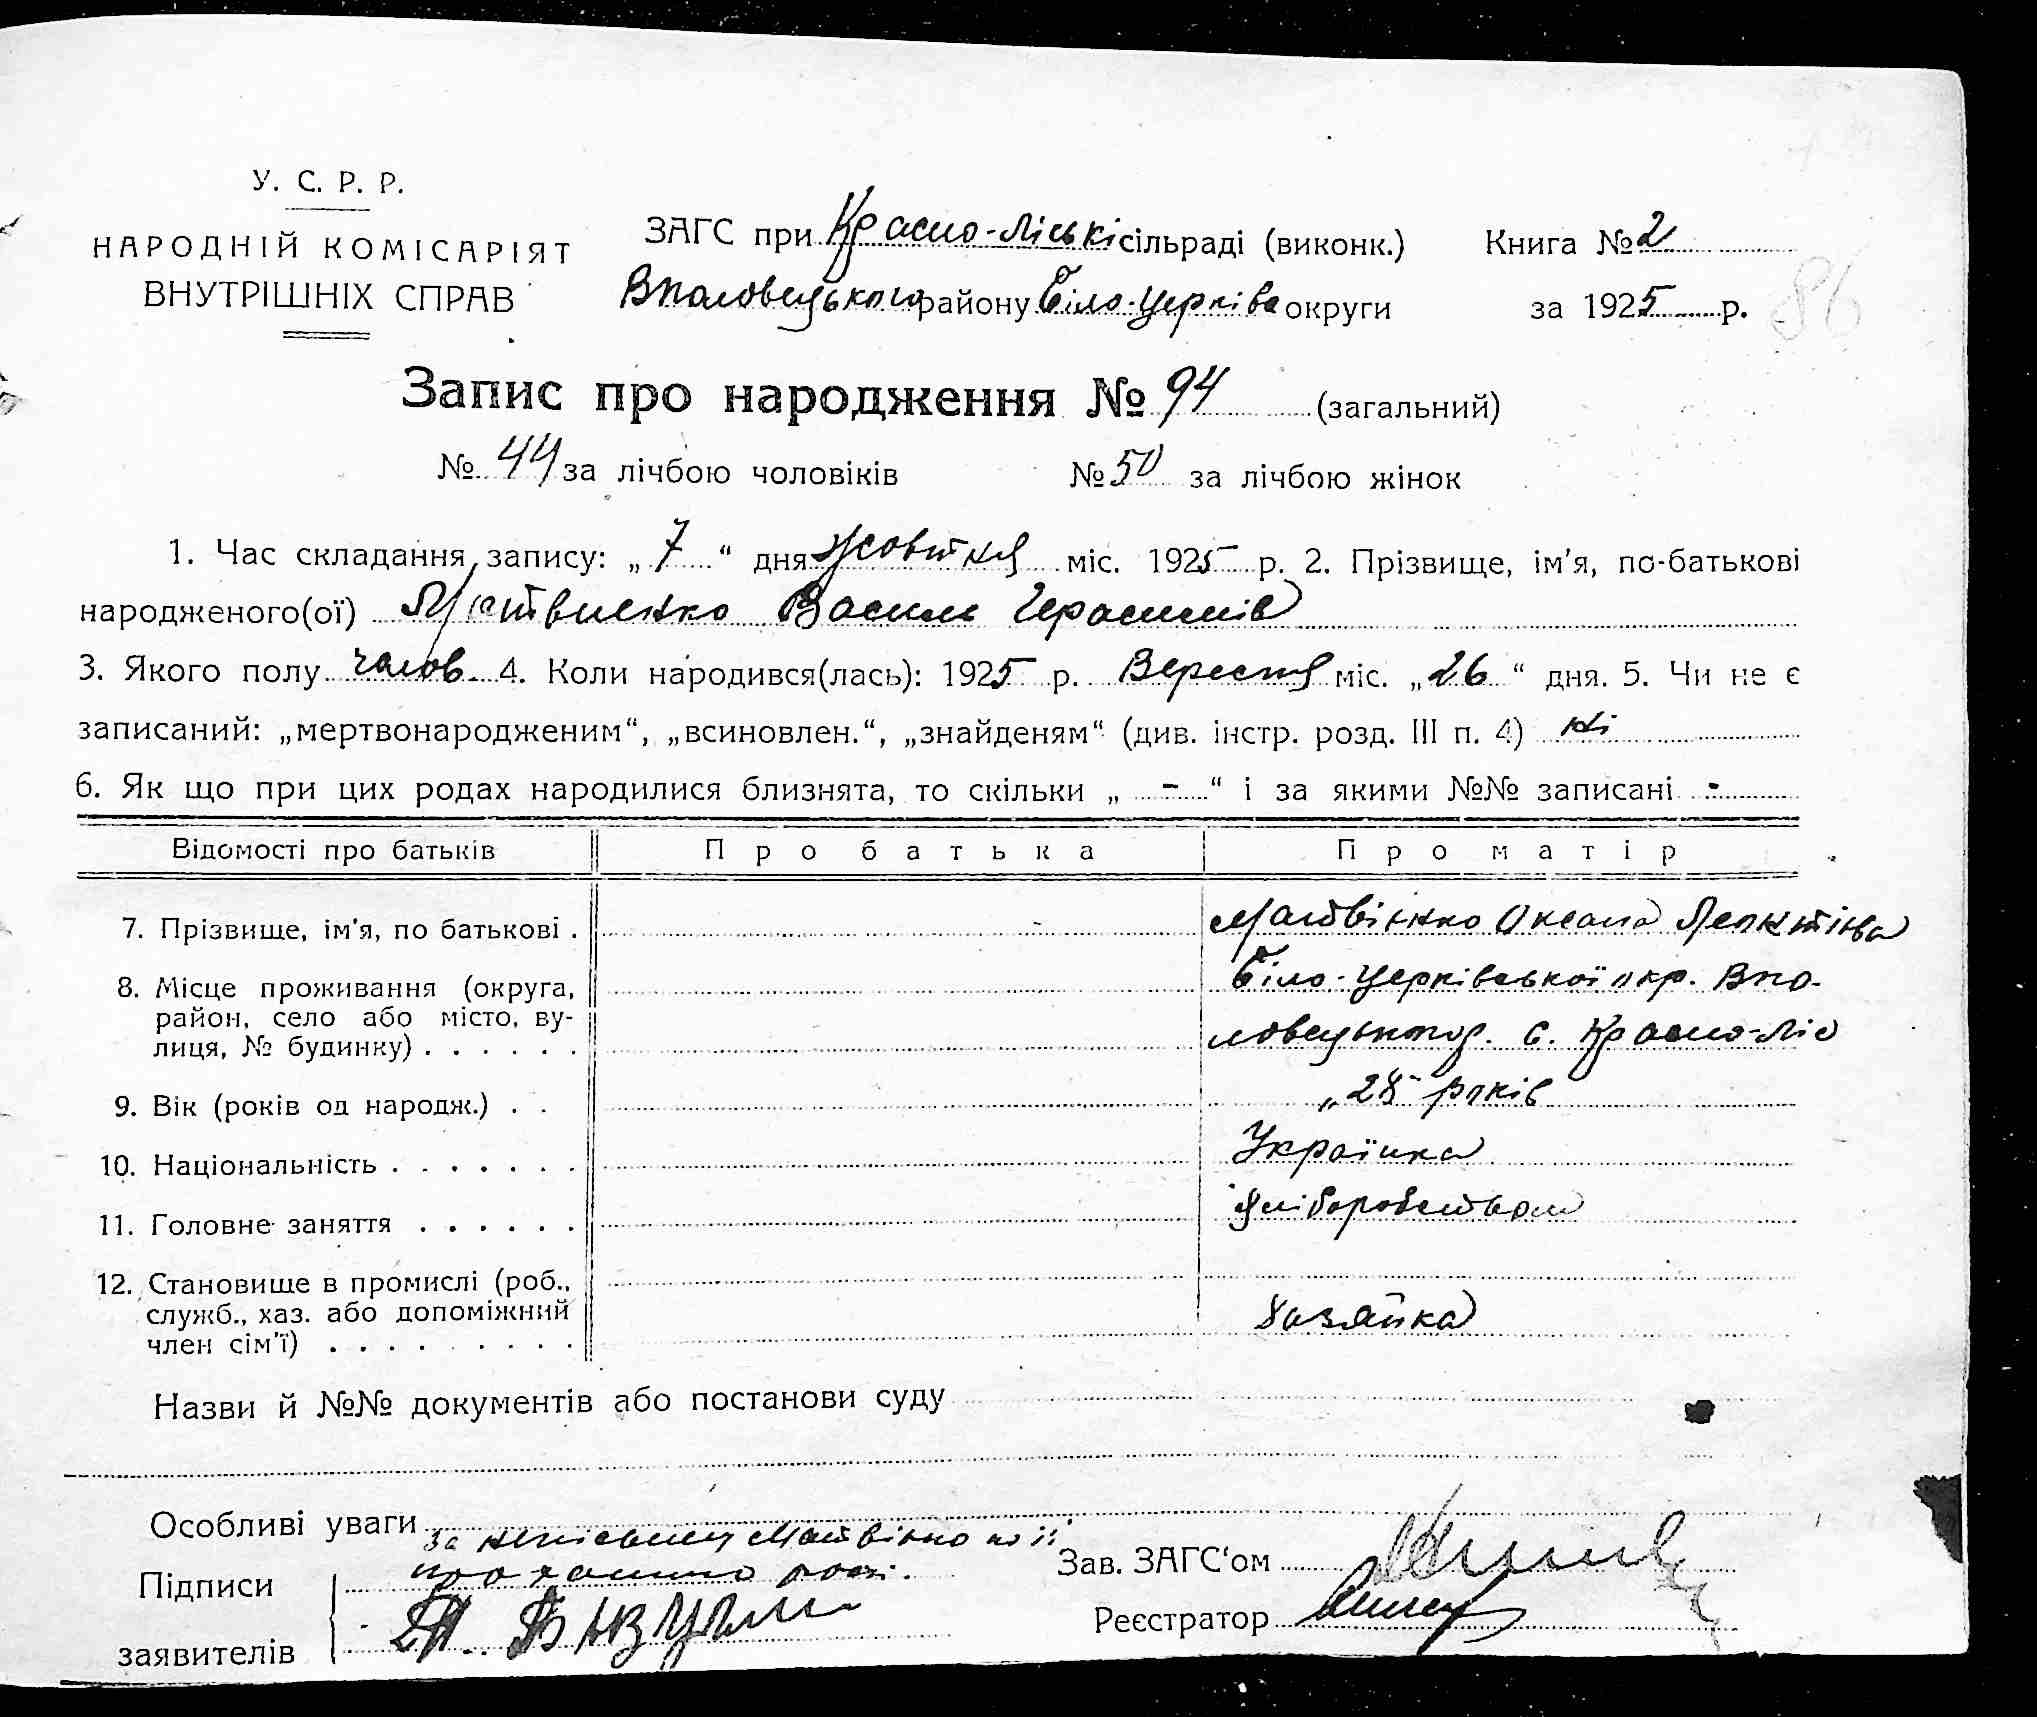 У. С. Р. Р.
НАРОДНІЙ КОМІСАРІЯТ
ВНУТРІШНІХ СПРАВ
ЗАГС при Красно-Ліські сільраді (виконк.) Книга № 2
Вполовецького району Біло-Церківс округи за 1925 р.
86
Запис про народження № 94 (загальний)
№ 44 за лічбою чоловіків № 50 за лічбою жінок
1. Час складання запису: „ 7 “ дня Жовтня міс. 1925 р. 2. Прізвище, ім'я, по-батькові
народженого(ої) Матвиенко Василь Герасимів
3. Якого полу чалов. 4. Коли народився(лась): 1925 р. Вересня міс. „ 26 “ дня. 5. Чи не є
записаний: „мертвонародженим“, „всиновлен.“, „знайденям“ (див. інстр. розд. III п. 4) ні
6. Як що при цих родах народилися близнята, то скільки „ - “ і за якими №№ записані -
Відомості про батьків Про батька Про матір
7. Прізвище, ім'я, по батькові . Матвінко Оксана
8. Місце проживання (округа, Біло-Церківської окр. Впо-
район, село або місто, ву-
лиця, № будинку) . . . . . . с. Красно-Ліс
9. Вік (років од народж.) . . „28" років
10. Національність . . . . . . . Українка
11. Головне заняття . . . . . . Хліборобством
12. Становище в промислі (роб.,
служб., хаз. або допоміжний
член сім'ї) . . . . . . . . . Хазяйка
Назви й №№ документів або постанови суду
Особливі уваги
за неписьмену Матвінко по її
проханню
Підписи
заявителів
Зав. ЗАГС'ом
Реєстратор